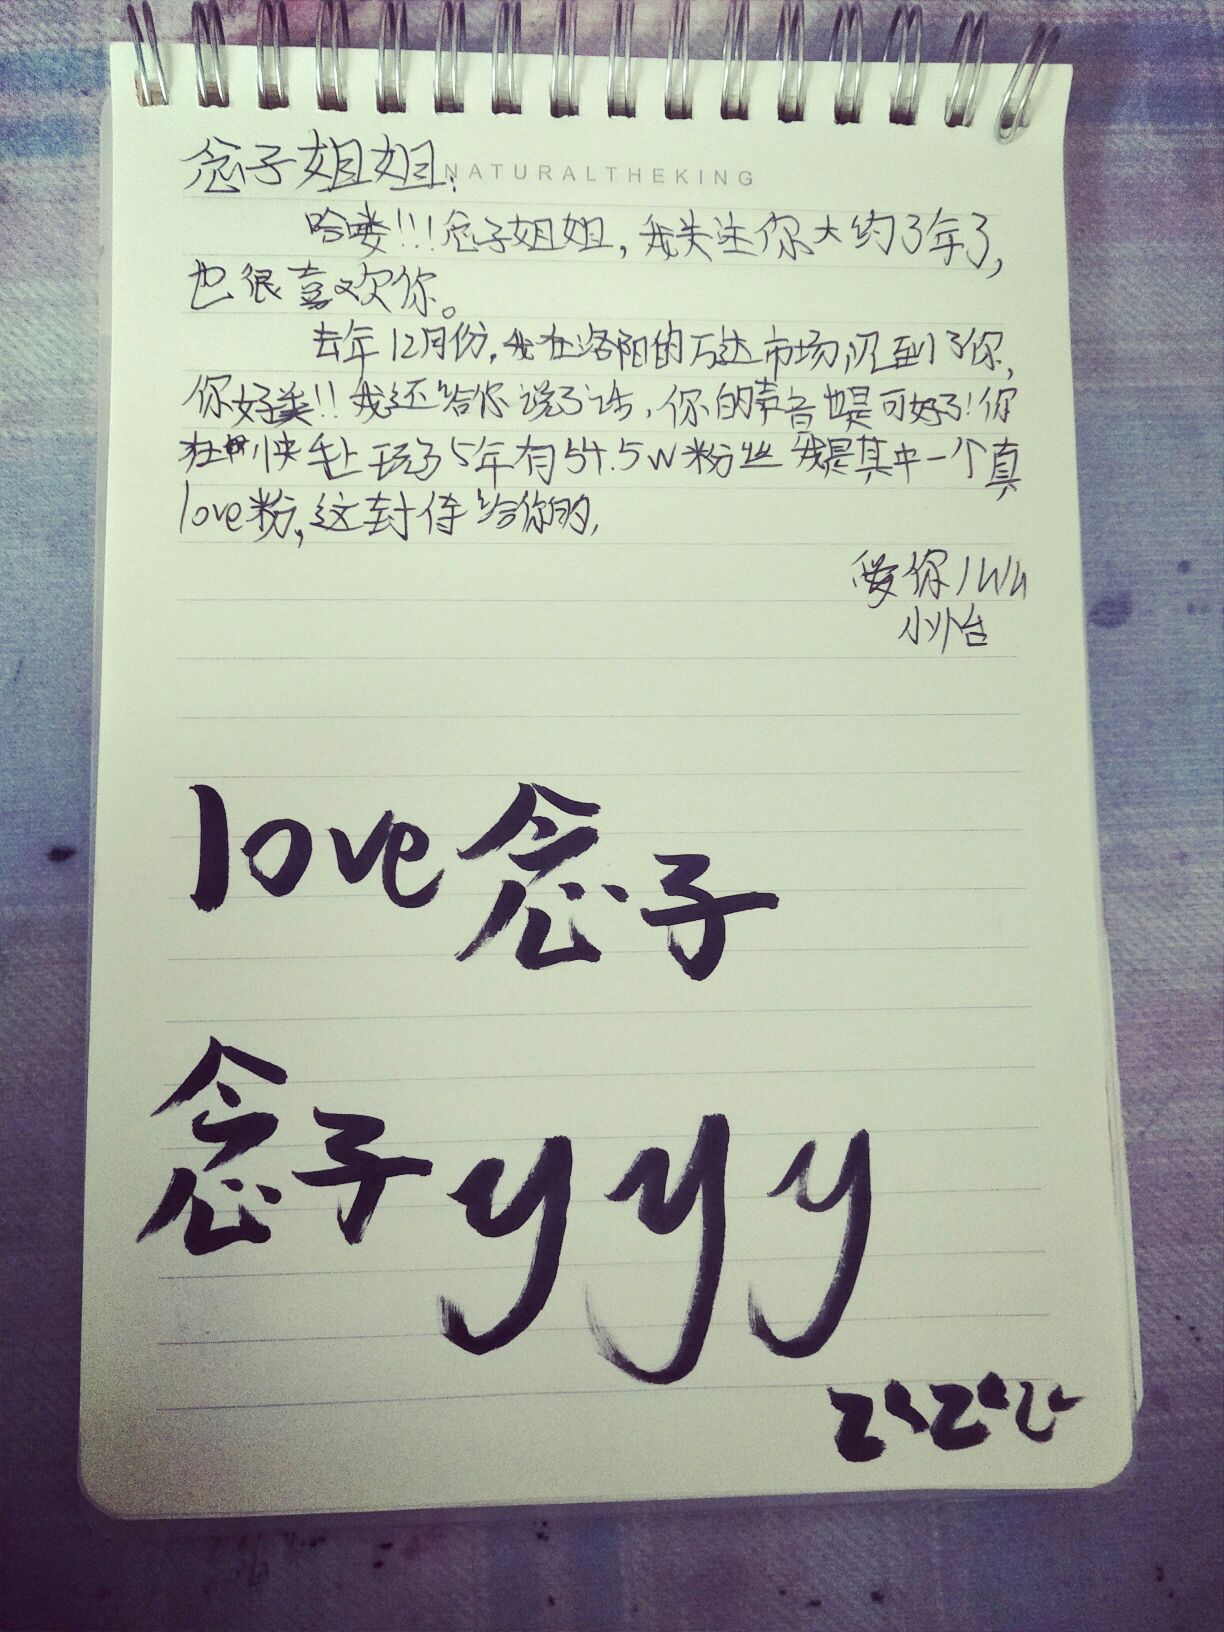 念子姐姐:
NATURALTHEKING
哈喽!!!念子姐姐,我关注你大约3年了,
也很喜欢你。
去年12月份,我在洛阳的万达市场,见到了你,
你好美!!我还给你说了话,你的声音也是可好了!你
在快手上玩了5年有54.5w粉丝 我是其中一个真
love粉,这封信给你的,
爱你
小
love念子
念子yyy